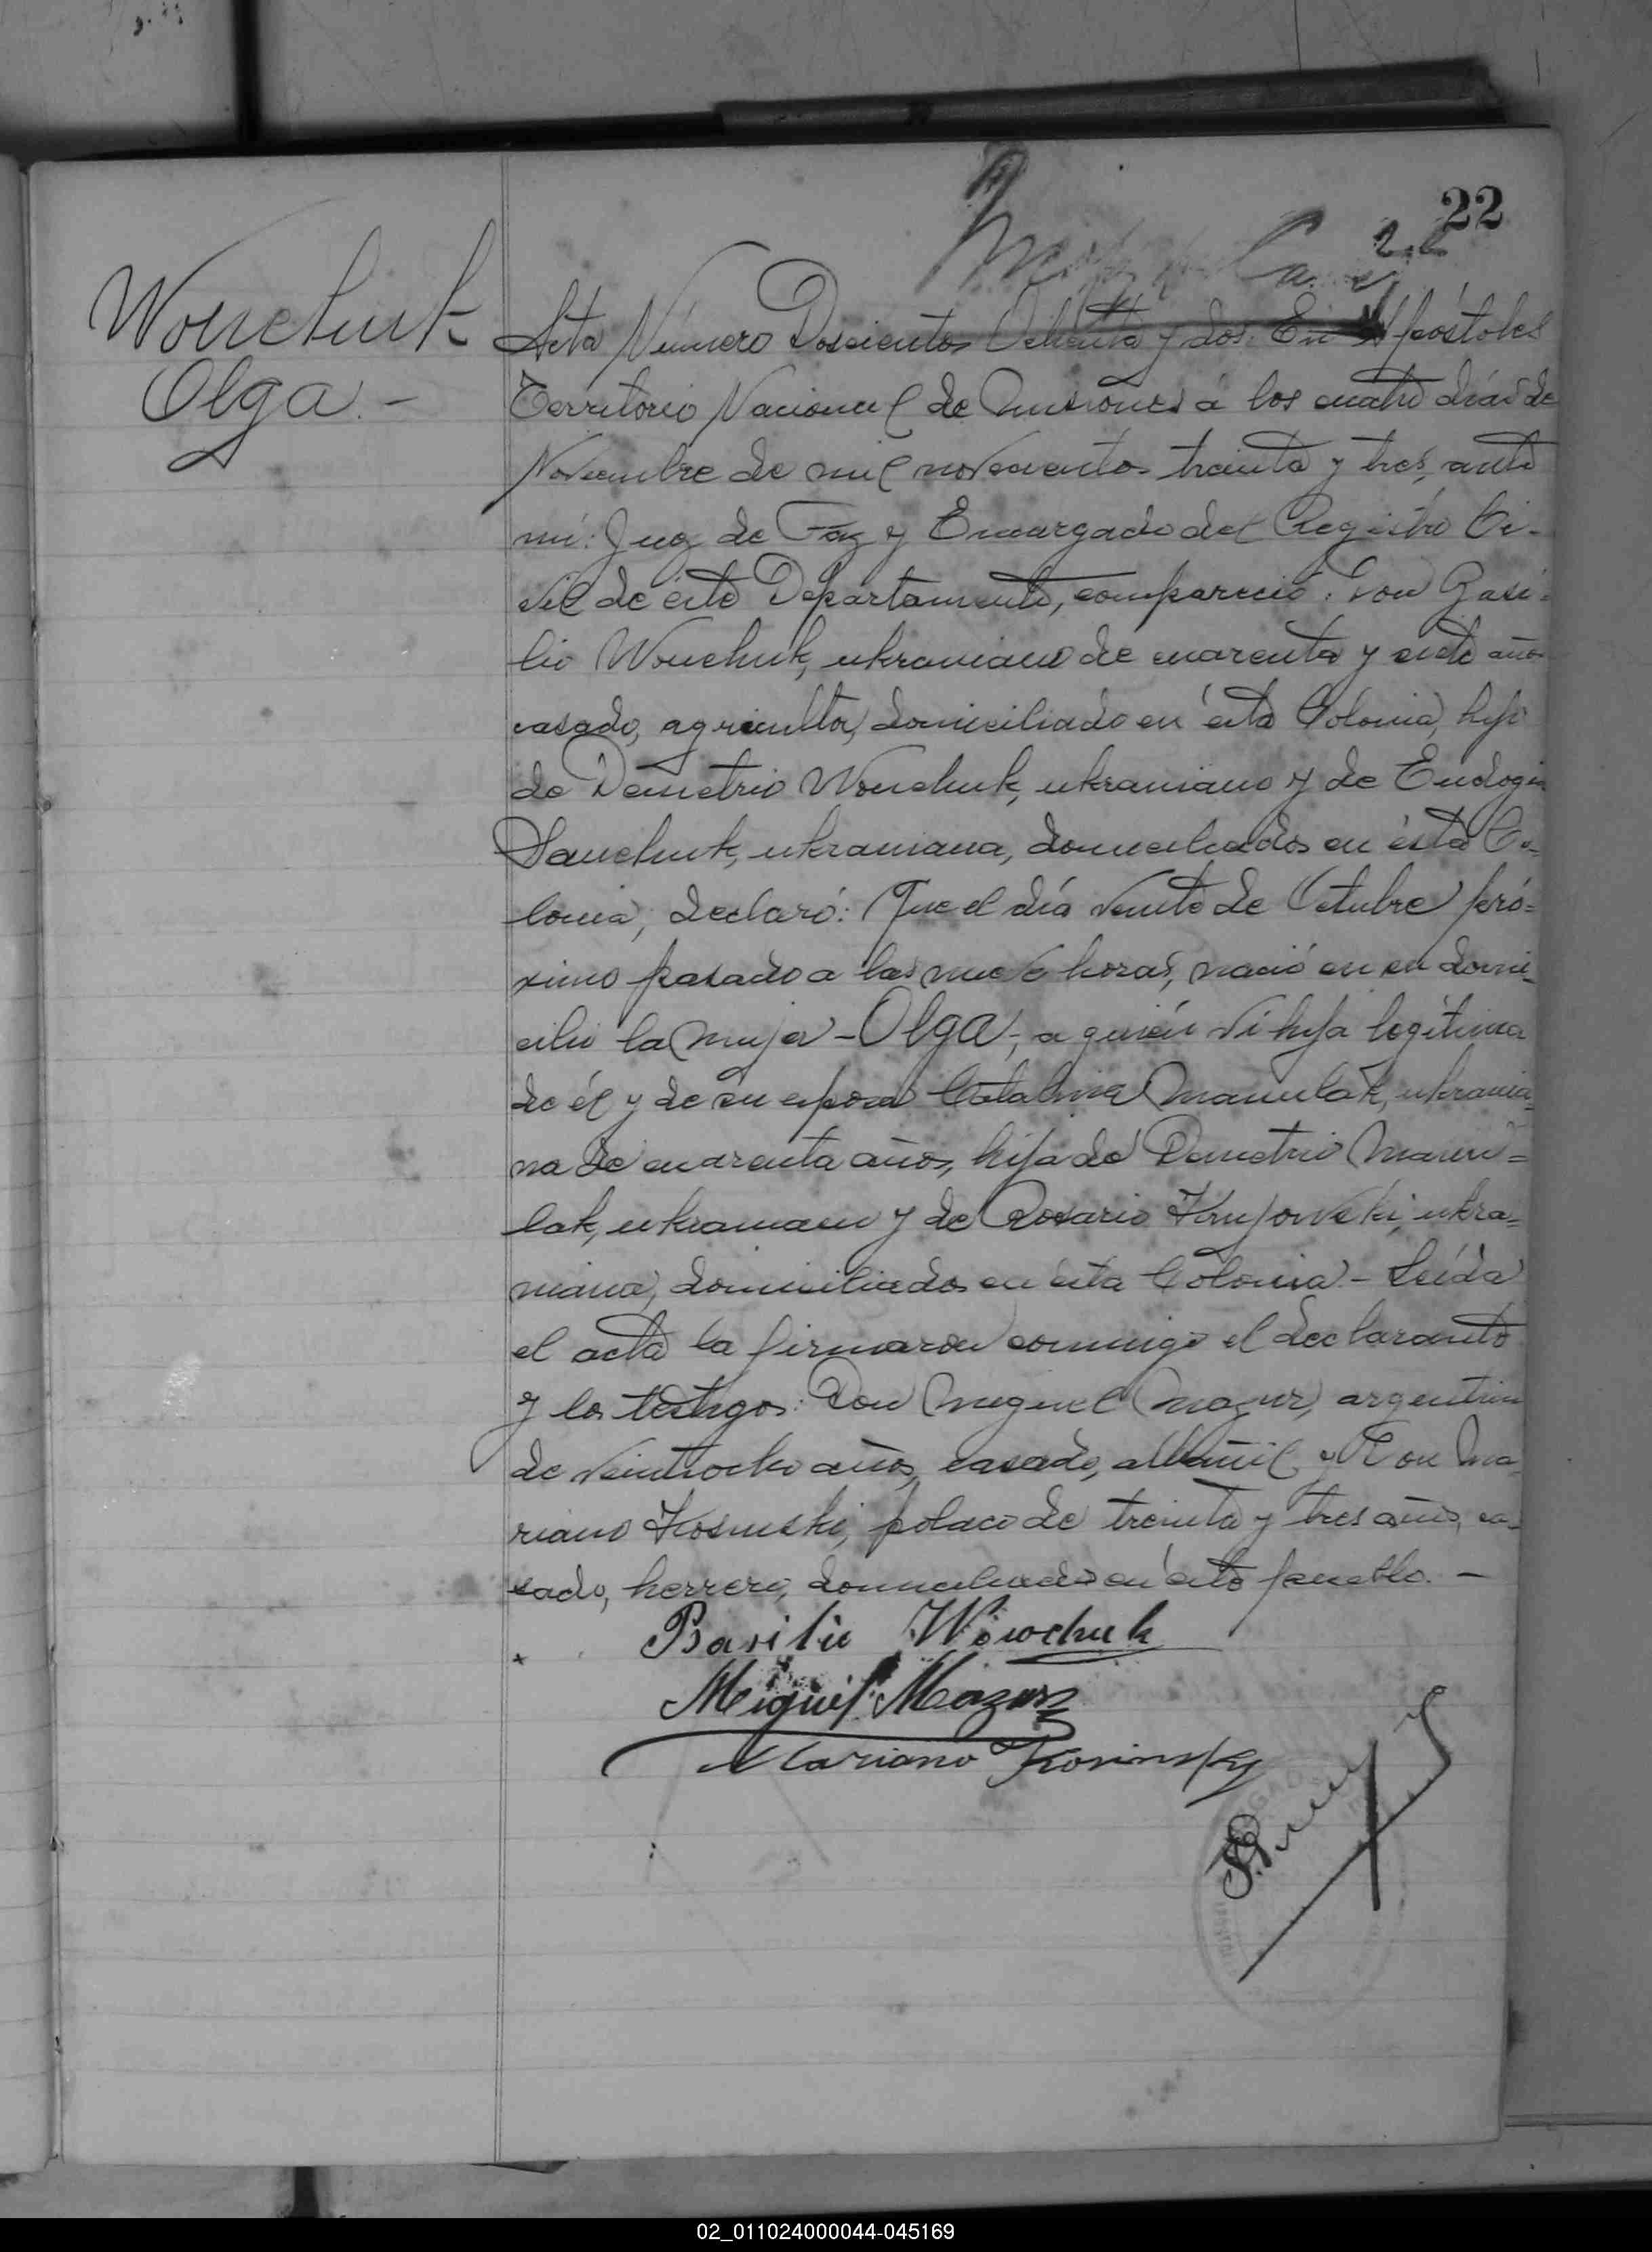 22
Wouchuk
Olga.-
Acta Número Doscientos Ochenta y dos. En Apóstoles
Territorio Nacional de Misiones á los cuatro días de
Noviembre de mil novecientos treinta y tres, ante
mí: Juez de Paz y Encargado del Registro Ci-
vil de éste Departamento, compareció: Don Basi-
lio Wouchuk, ukraniano de cuarenta y siete años
casado, agricultor, domiciliado en ésta Colonia, hijo
de Demetrio Wouchuk, ukraniano y de Eudogia
Sauchuk, ukraniana, domiciliados en ésta Co-
lonia, declaró: Que el día veinte de Octubre pró=
ximo pasado a las nueve horas, nació en su domi-
cilio la mujer -Olga-, a quién ví hija legítima
de él y de su esposa Catalina Manulak, ukrania=
na de cuarenta años, hija de Demetrio Manu=
lak, ukraniano y de Rosario ukra=
niana, domiciliados en ésta Colonia.- Leída
el acta la firmaron conmigo el declarante
y los testigos: Don Miguel Mazur, argentino
de veintiocho años, casado, albañil y Don Ma
riano Kosinski, polaco de treinta y tres años, ca-
sado, herrero, domiciliados en ésto pueblo. -
Basilio Wowchuk
Miguel Mazur
Mariano Kosinsky
02_011024000044-045169